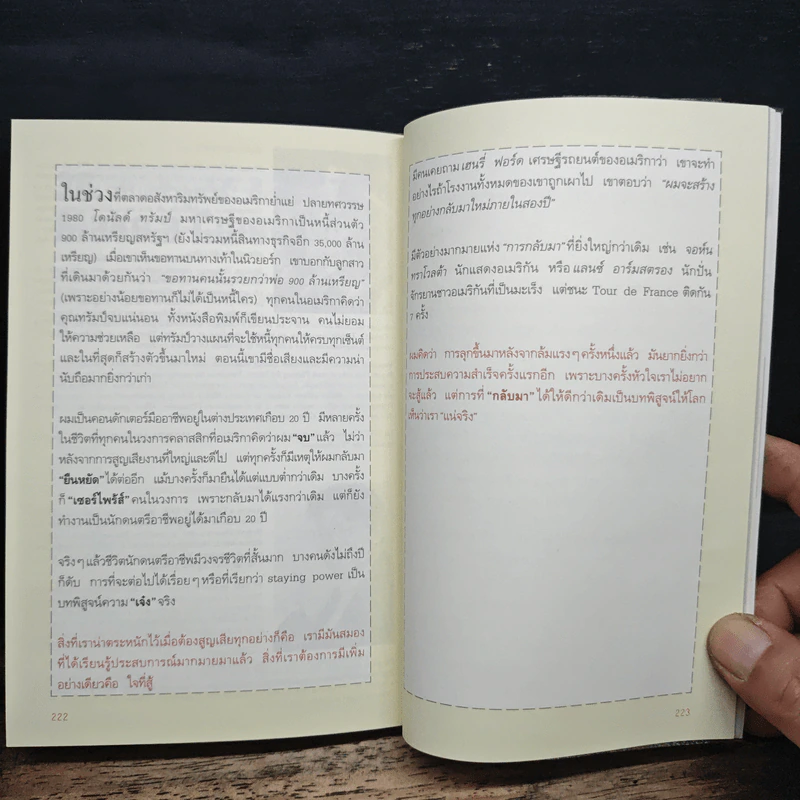 ในช่วงที่ตลาดอสังหาริมทรัพย์ของอเมริกาย่ำแย่ ปลายทศวรรษ
1980 โดนัลด์ ทรัมป์ มหาเศรษฐีของอเมริกาเป็นหนี้ส่วนตัว
900 ล้านเหรียญสหรัฐฯ (ยังไม่รวมหนี้สินทางธุรกิจอีก 35,000 ล้าน
เหรียญ) เมื่อเขาเห็นขอทานบนทางเท้าในนิวยอร์ก เขาบอกกับลูกสาว
ที่เดินมาด้วยกันว่า “ขอทานคนนั้นรวยกว่าพ่อ 900 ล้านเหรียญ”
(เพราะอย่างน้อยขอทานก็ไม่ได้เป็นหนี้ใคร) ทุกคนในอเมริกาคิดว่า
คุณทรัมป์จบแน่นอน ทั้งหนังสือพิมพ์ก็เขียนประจาน คนไม่ยอม
ให้ความช่วยเหลือ แต่ทรัมป์วางแผนที่จะใช้หนี้ทุกคนให้ครบทุกเซ็นต์
และในที่สุดก็สร้างตัวขึ้นมาใหม่ ตอนนี้เขามีชื่อเสียงและมีความน่า
นับถือมากยิ่งกว่าเก่า
ผมเป็นคอนดักเตอร์มืออาชีพอยู่ในต่างประเทศเกือบ 20 ปี มีหลายครั้ง
ในชีวิตที่ทุกคนในวงการคลาสสิกที่อเมริกาคิดว่าผม “จบ” แล้ว ไม่ว่า
หลังจากการสูญเสียงานที่ใหญ่และดีไป แต่ทุกครั้งก็มีเหตุให้ผมกลับมา
“ยืนหยัด” ได้ต่ออีก แม้บางครั้งก็มายืนได้แต่แบบต่ำกว่าเดิม บางครั้ง
ก็ “เซอร์ไพร้ส์” คนในวงการ เพราะกลับมาได้แรงกว่าเดิม แต่ก็ยัง
ทำงานเป็นนักดนตรีอาชีพอยู่ได้มาเกือบ 20 ปี
จริงๆ แล้วชีวิตนักดนตรีอาชีพมีวงจรชีวิตที่สั้นมาก บางคนดังไม่ถึงปี
ก็ดับ การที่จะต่อไปได้เรื่อยๆ หรือที่เรียกว่า staying power เป็น
บทพิสูจน์ความ “เจ๋ง” จริง
สิ่งที่เราน่าตระหนักไว้เมื่อต้องสูญเสียทุกอย่างก็คือ เรามีมันสมอง
ที่ได้เรียนรู้ประสบการณ์มากมายมาแล้ว สิ่งที่เราต้องการมีเพิ่ม
อย่างเดียวคือ ใจที่สู้
222
มีคนเคยถาม เฮนรี่ ฟอร์ด เศรษฐีรถยนต์ของอเมริกาว่า เขาจะทำ
อย่างไรถ้าโรงงานทั้งหมดของเขาถูกเผาไป เขาตอบว่า “ผมจะสร้าง
ทุกอย่างกลับมาใหม่ภายในสองปี”
มีตัวอย่างมากมายแห่ง “การกลับมา” ที่ยิ่งใหญ่กว่าเดิม เช่น จอห์น
ทราโวลต้า นักแสดงอเมริกัน หรือ แลนซ์ อาร์มสตรอง นักปั่น
จักรยานชาวอเมริกันที่เป็นมะเร็ง แต่ชนะ Tour de France ติดกัน
7 ครั้ง
ผมคิดว่า การลุกขึ้นมาหลังจากล้มแรงๆ ครั้งหนึ่งแล้ว มันยากยิ่งกว่า
การประสบความสำเร็จครั้งแรกอีก เพราะบางครั้งหัวใจเราไม่อยาก
จะสู้แล้ว แต่การที่ “กลับมา” ได้ให้ดีกว่าเดิมเป็นบทพิสูจน์ให้โลก
เห็นว่าเรา “แน่จริง”
223